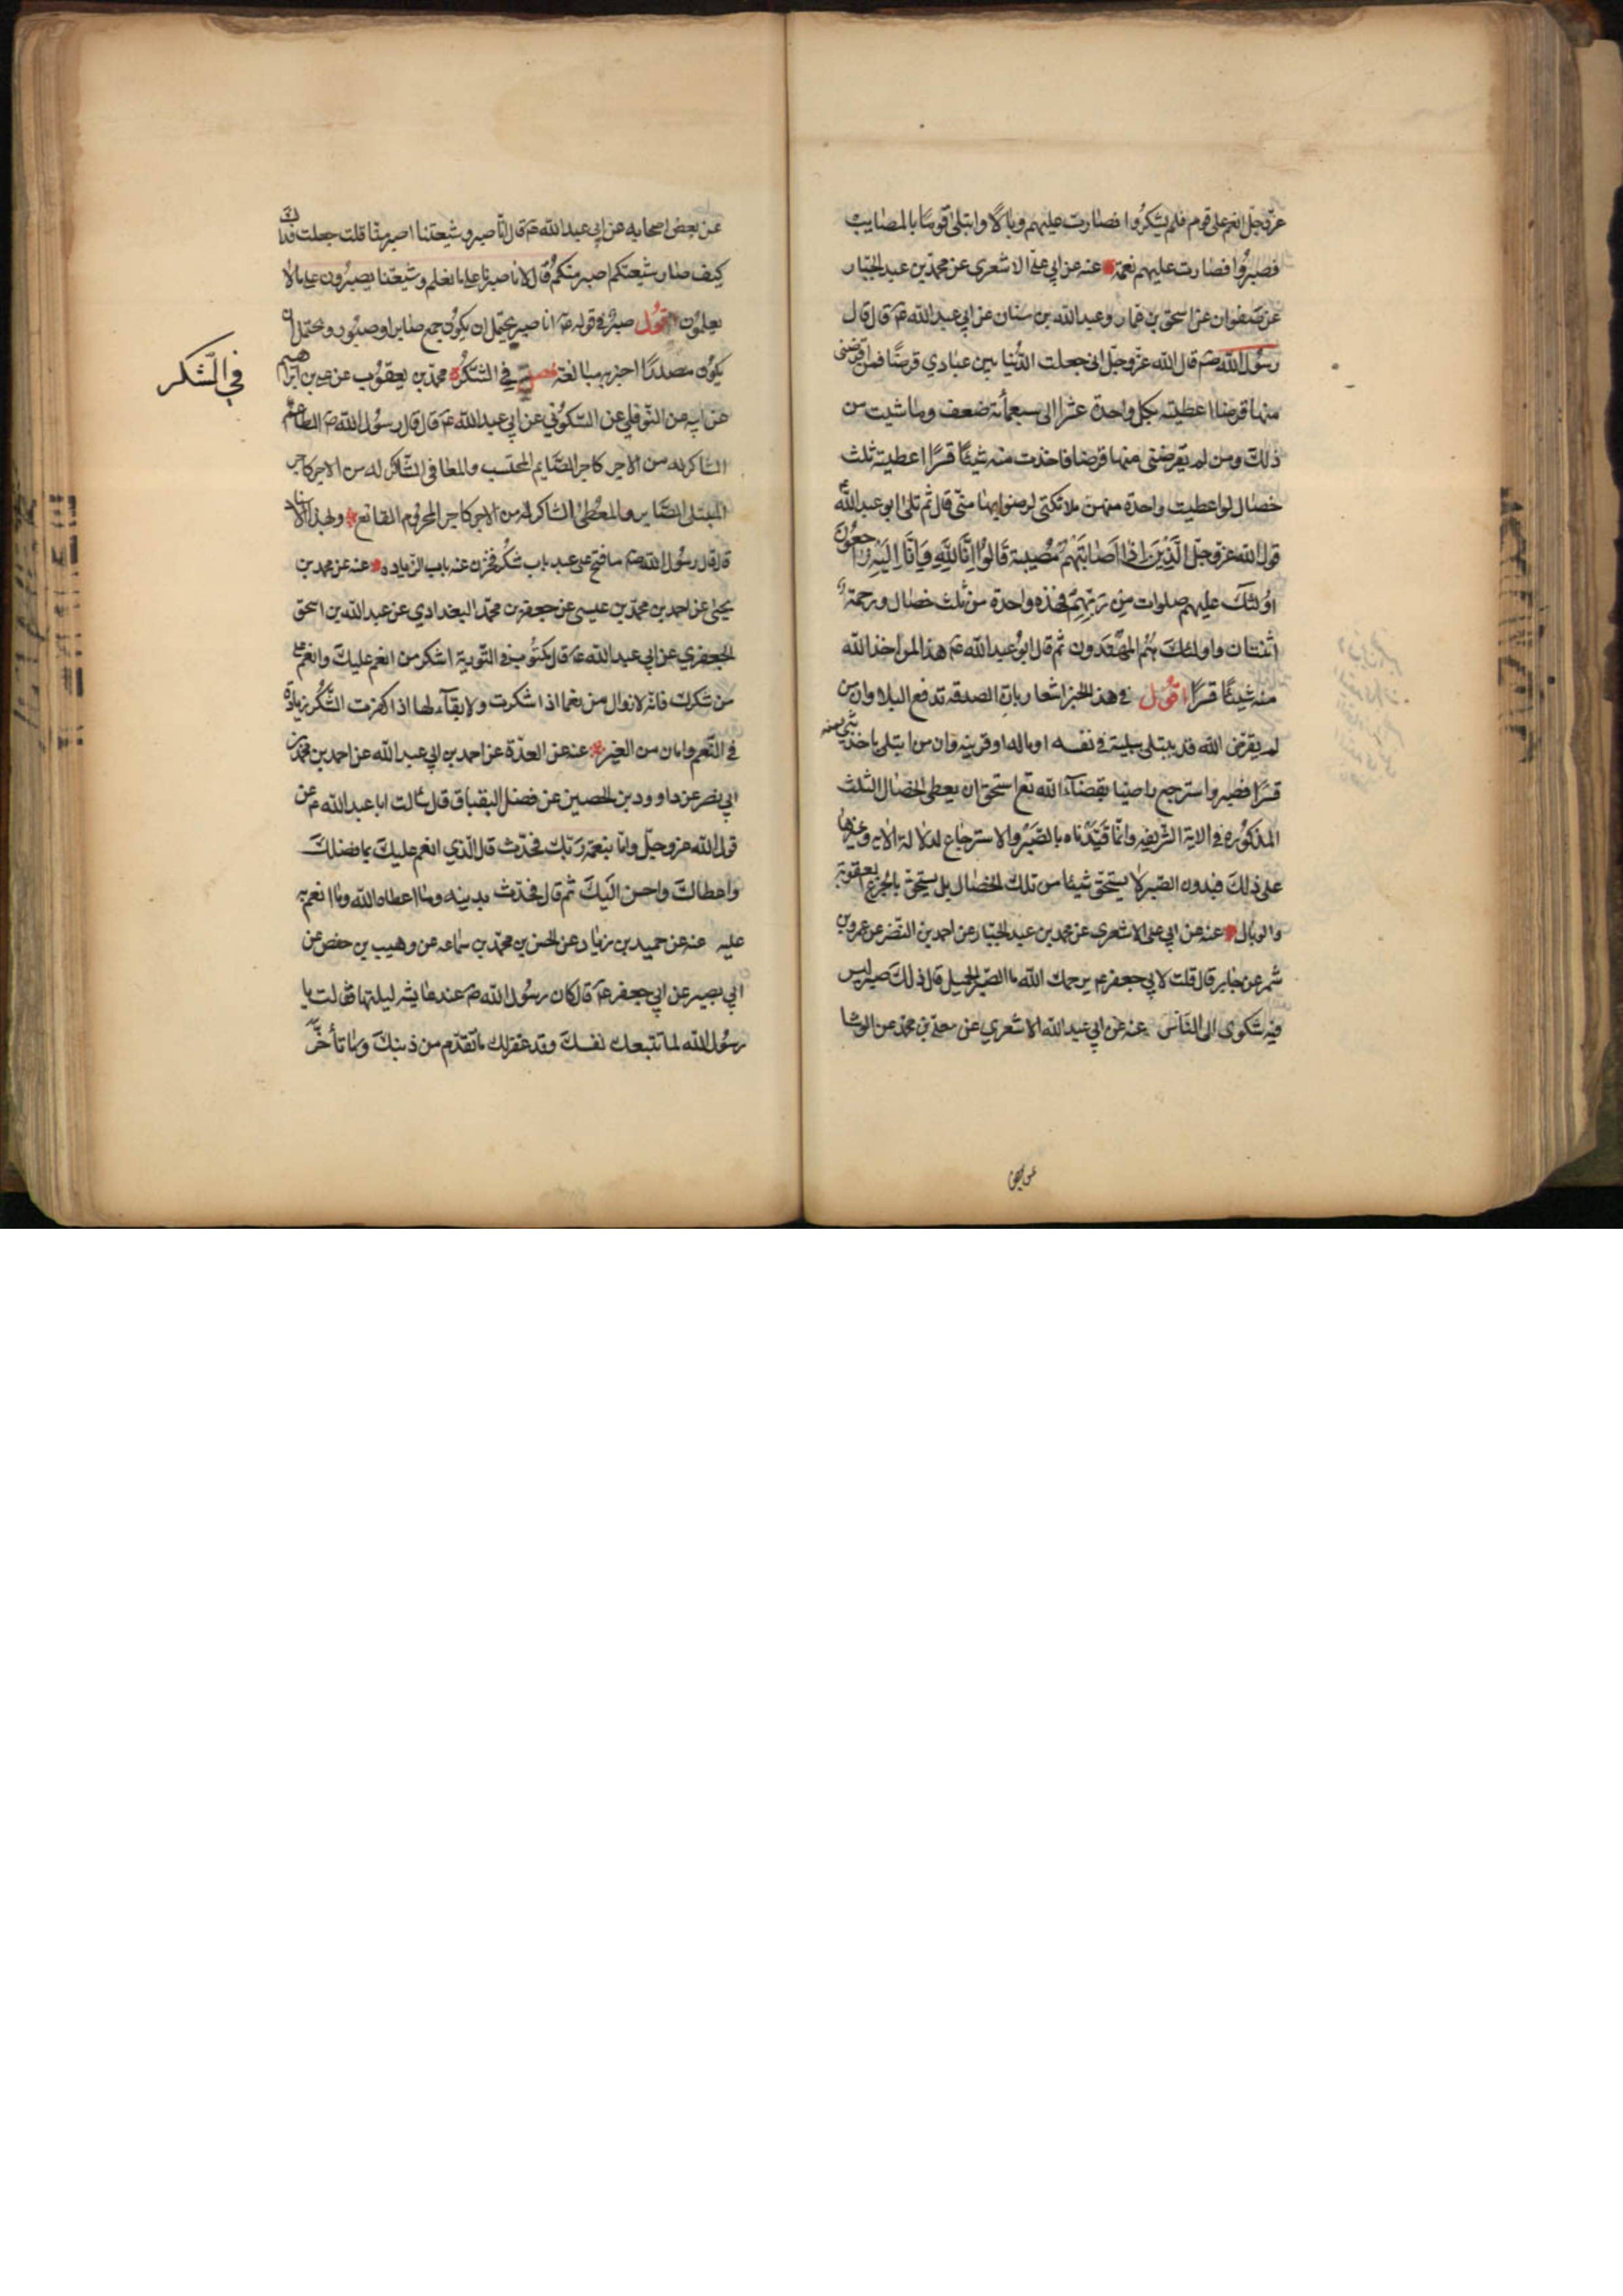 عزوجل انعم على قوم فلم يشكروا فصارت عليهم وبالا وابتلى قوما بالمصايب
فصبروا فصارت عليهم نعمة عنه عن ابي علي الاشعري عن محمد بن عبد الجبار
عن صفوان عن اسحق بن عمار وعبد الله بن سنان عن ابي عبد الله ع قال قال
رسول الله ص قال الله عزوجل اني جعلت الدنيا بين عبادي قرضا فمن اقرضني
منها قرضا اعطيته بكل واحدة عشرا الى سبعمأئة ضعف وما شيت من
ذلك ومن لم يقرضني منها قرضا فاخذت منه شيئا قسرا اعطيته ثلث
خصال لو اعطيت واحدة منهن ملائكتي لرضوا بها مني قال ثم تلى ابو عبد الله ع
قول الله عزوجل الَّذين اذا اصابتهم مصيبة قالوا انا لله وانا اليه راجعون
اولئك عليهم صلوات من ربهم فهذه واحدة من ثلث خصال ورحمة
اثنتان واولئك هم المهتدون ثم قال ابو عبد الله ع هذا لمن اخذ الله
منه شيئا قسرا اقول في هذا الخبر اشعار بان الصدقه تدفع البلا وان من
لم يقرض الله قد يبتلى ببلية في نفسه او ماله او قرينه وان من ابتلى باخذ شئ منه
قسرا فصبر واسترجع راضيا بقضآء الله تع استحق ان يعطى الخصال الثلث
المذكوره في الاية الشريفه وانما قيدناه بالصبر والاسترجاع لدلالة الايه وغيرها
على ذلك فبدون الصبر لا يستحق شيئا من تلك الخصال بل يستحق بالجزع العقوبة
والوبال عنه عن ابي علي الاشعري عن محمد بن عبد الجبار عن احمد بن النضر عن عمرو بن
شمر عن جابر قال قلت لابي جعفر ع يرحمك الله ما الصبر الجميل قال ذلك صبر ليس
فيه شكوى الى الناس عنه عن ابي عبد الله الاشعري عن معلى بن محمد عن الوشا
عن بعض
عن بعض اصحابه عن ابي عبد الله ع قال انا صبر وشيعتنا اصبر منا قلت جعلت فداك
كيف صار شيعتكم اصبر منكم قال لانا صبرنا على ما نعلم وشيعتنا يصبرون على ما لا
يعلمون اقول صبر في قوله ع انا صبر يحتمل ان يكون جمع صابر او صبور ويحتمل ان
يكون مصدرا اخبر به مبالغة فصل في الشكر محمد بن يعقوب عن علي بن ابراهيم
في الشكر
عن ابيه عن النوفلي عن السكوني عن ابي عبد الله ع قال قال رسول الله ص الطاعم
الشاكر له من الاجر كاجر الصايم المحتسب والمعافى الشاكر له من الاجر كاجر
المبتلى الصابر والمعطى الشاكر له من الاجر كاجر المحروم القانع وبهذا الاسناد
قال قال رسول الله ص ما فتح على عبد باب شكر فخزن عنه باب الزياده عنه عن محمد بن
يحيى عن احمد بن محمد بن عيسى عن جعفر بن محمد البغدادي عن عبد الله بن اسحق
الجعفري عن ابي عبد الله ع قال مكتوب في التورية اشكر من انعم عليك وانعم على
من شكرك فانه لا زوال من نعما اذا شكرت ولا بقآء لها اذا كفرت الشكر زيادة
في النعم وامان من الغير عنه عن العدة عن احمد بن ابي عبد الله عن احمد بن محمد بن
ابي نصر عن داوود بن الحصين عن فضل البقباق قال سألت ابا عبد الله ع عن
قول الله عزوجل واما بنعمة ربك فحدث قال الذي انعم عليك بما فضلك
واعطاك واحسن اليك ثم قال فحدث بدينه وما اعطاه الله وما انعم به
عليه عنه عن حميد بن زياد عن الحسن بن محمد بن سماعه عن وهيب بن حفص عن
ابي بصير عن ابي جعفر ع قال كان رسول الله ص عند عايشه ليلتها فقالت يا
رسول الله لما تتبعك نفسك وقد غفر لك ما تقدم من ذنبك وما تأخر